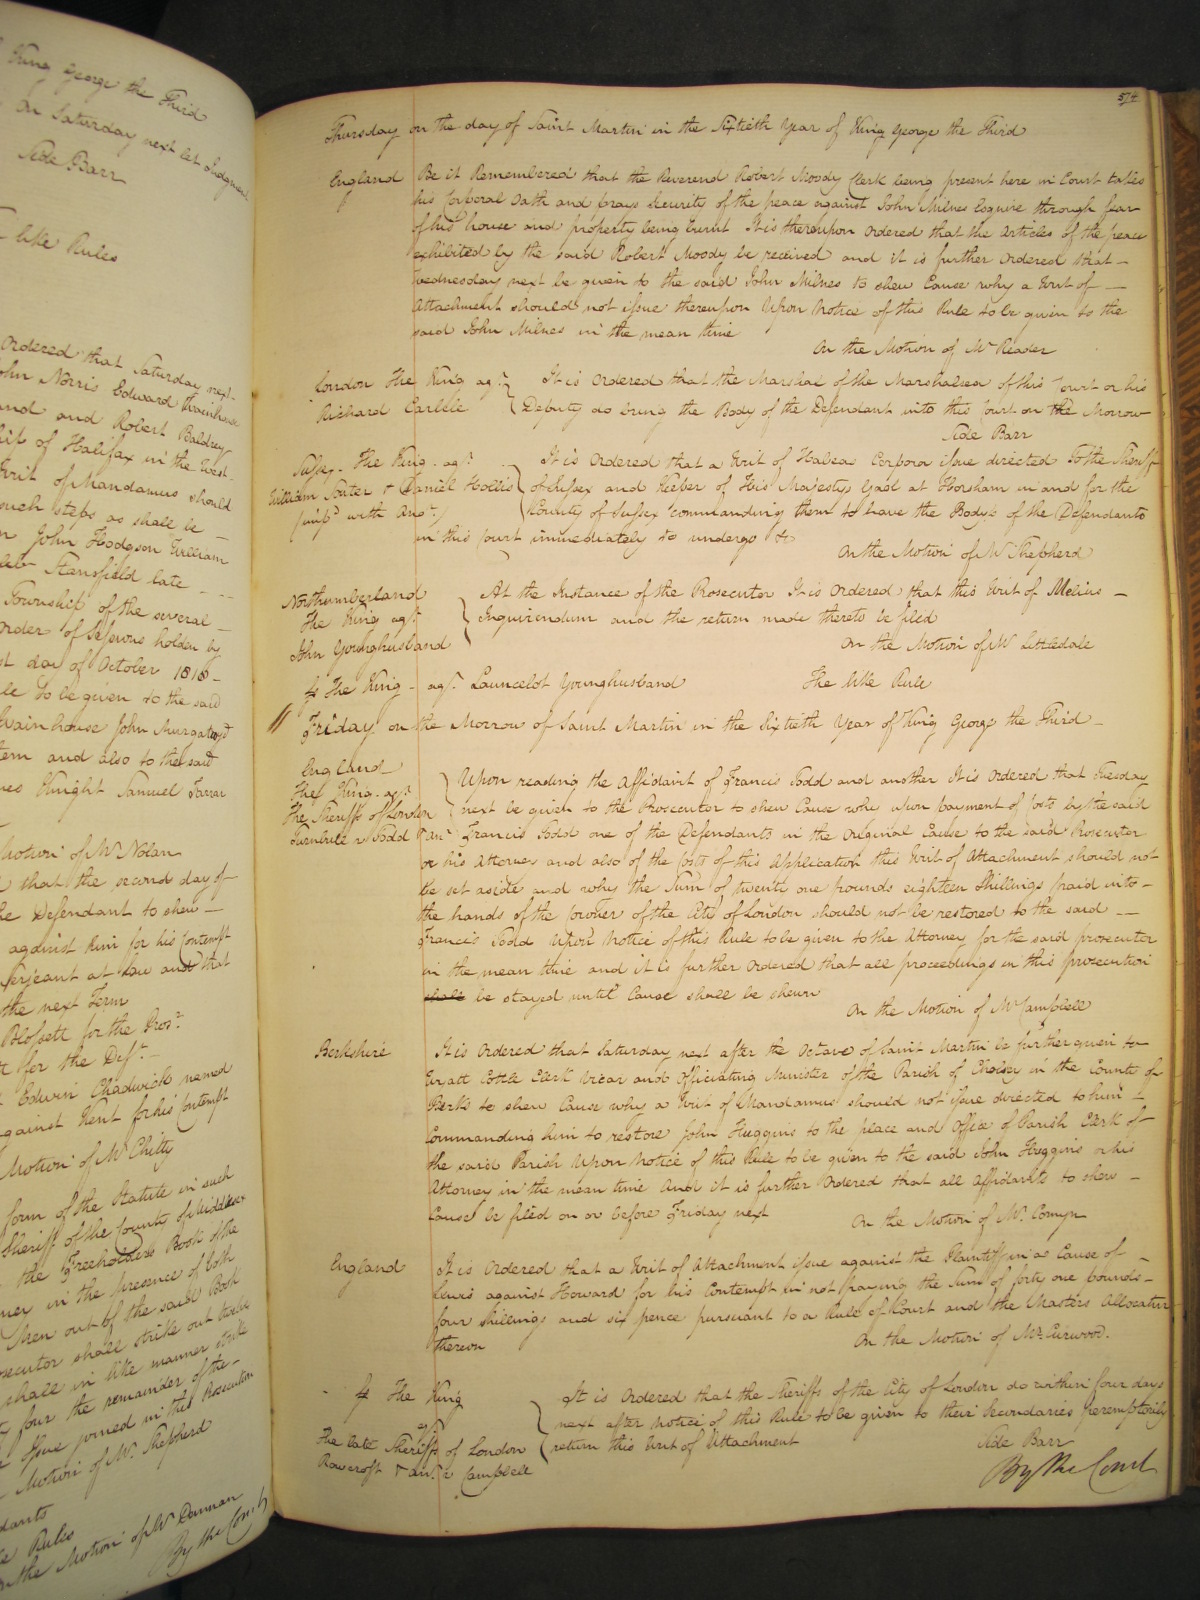 King George the Third
On Saturday next let Judgment
Side Barr
like Rules
Ordered that Saturday next
John Norris Edward Wainhouse
and and Robert Baldrey
ship of Halifax in the West
Writ of Mandamus should
such steps as shall be
John Hodgson William
Stansfield late
Township of the several
Order of Sessions holden by
st day of October 1818
le to be given to the said
Wainhouse John Murgatroyd
tem and also to the said
mes Knight Samuel Farrar
Motion of Mr Nolan
that the second day of
the Defendant to shew
against him for his Contempt
Serjeant at Law and that
the next Term
Blossett for the Prosr.
for the Deft.
Edwin Chadwick named
against Kent for his Contempt
Motion of Mr Chitty
form of the Statute in such
Sheriff of the County of Middlesex
the Freeholders Book of the
ney in the presence of both
Men out of the said Book
osecutor shall strike out twelve
shall in like manner strike
four the remainder of the
Issue joined in this Prosecution
Motion of Mr. Shepherd
dants
e Rules
On the Motion of Mr Denman
By the Court
574
Thursday on the day of Saint Martin in the Sixtieth Year of King George the Third
England Be it Remembered that the Reverend Robert Moody Clerk being present here in Court takes
his Corporal Oath and prays security of the peace against John Milnes Esquire through fear
of his house and property being burnt It is thereupon Ordered that the Articles of the peace
exhibited by the said Robert Moody be received and it is further Ordered that
Wednesday next be given to the said John Milnes to shew Cause why a Writ of
Attachment should not issue thereupon Upon Notice of this Rule to be given to the
said John Milnes in the mean time
On the Motion of Mr Reader
London The King agt. It is Ordered that the Marshal of the Marshalsea of this Court or his
Richard Carlile Deputy do bring the Body of the Defendant into this Court on the Morrow
Side Barr
Sussex. The King agt. It is Ordered that a Writ of Habeas Corpora issue directed to the Sheriff
William Salter & Daniel Hollis of Sussex and Keeper of His Majestys Gaol at Horsham in and for the
(impd. with anor.) County of Sussex commanding them to have the Bodys of the Defendants
in this Court immediately to undergo &c
On the Motion of Mr Shepherd
Northumberland At the Instance of the Prosecutor It is Ordered that this Writ of Melius
The King agt. Inquirendum and the return made thereto be filed
John Younghusband On the Motion of Mr Littledale
Y The King agt. Launcelot Younghusband The like Rule
Friday on the Morrow of Saint Martin in the Sixtieth Year of King George the Third
England Upon reading the Affidavit of Francis Todd and another It is Ordered that Tuesday
The King agt. next be given to the Prosecutor to shew Cause why upon payment of Costs by the said
The Sheriffs of London Francis Todd one of the Defendants in the Original Cause to the said Prosecutor
Turnbull v Todd & anr. or his Attorney and also of the Costs of this Application this Writ of Attachment should not
be set aside and why the Sum of twenty one pounds eighteen Shillings paid into
the hands of the Coroner of the City of London should not be restored to the said
Francis Todd Upon Notice of this Rule to be given to the Attorney for the said prosecutor
in the mean time and it is further Ordered that all proceedings in this prosecution
shall be stayed until Cause shall be shewn
On the Motion of Mr Campbell
Berkshire It is Ordered that Saturday next after the Octave of Saint Martin be further given to
Wyatt Cottle Clerk Vicar and Officiating Minister of the Parish of Cholsey in the County of
Berks to shew Cause why a Writ of Mandamus should not issue directed to him
Commanding him to restore John Huggins to the place and Office of Parish Clerk of
the said Parish Upon Notice of this Rule to be given to the said John Huggins or his
Attorney in the mean time And it is further Ordered that all Affidavits to shew
Cause be filed on or before Friday next
On the Motion of Mr. Comyn
England It is Ordered that a Writ of Attachment issue against the Plaintiff in a Cause of
Lewis against Howard for his Contempt in not paying the Sum of forty one pounds
four shillings and six pence pursuant to a Rule of Court and the Masters Allocatur
thereon On the Motion of Mr. Curwood.
Y The King It is Ordered that the Sheriffs of the City of London do within four days
agt. next after Notice of this Rule to be given to their Secondaries peremptorily
The late Sheriffs of London return this Writ of Attachment
Side Barr
Rowcroft & anr. v Campbell
By the Court